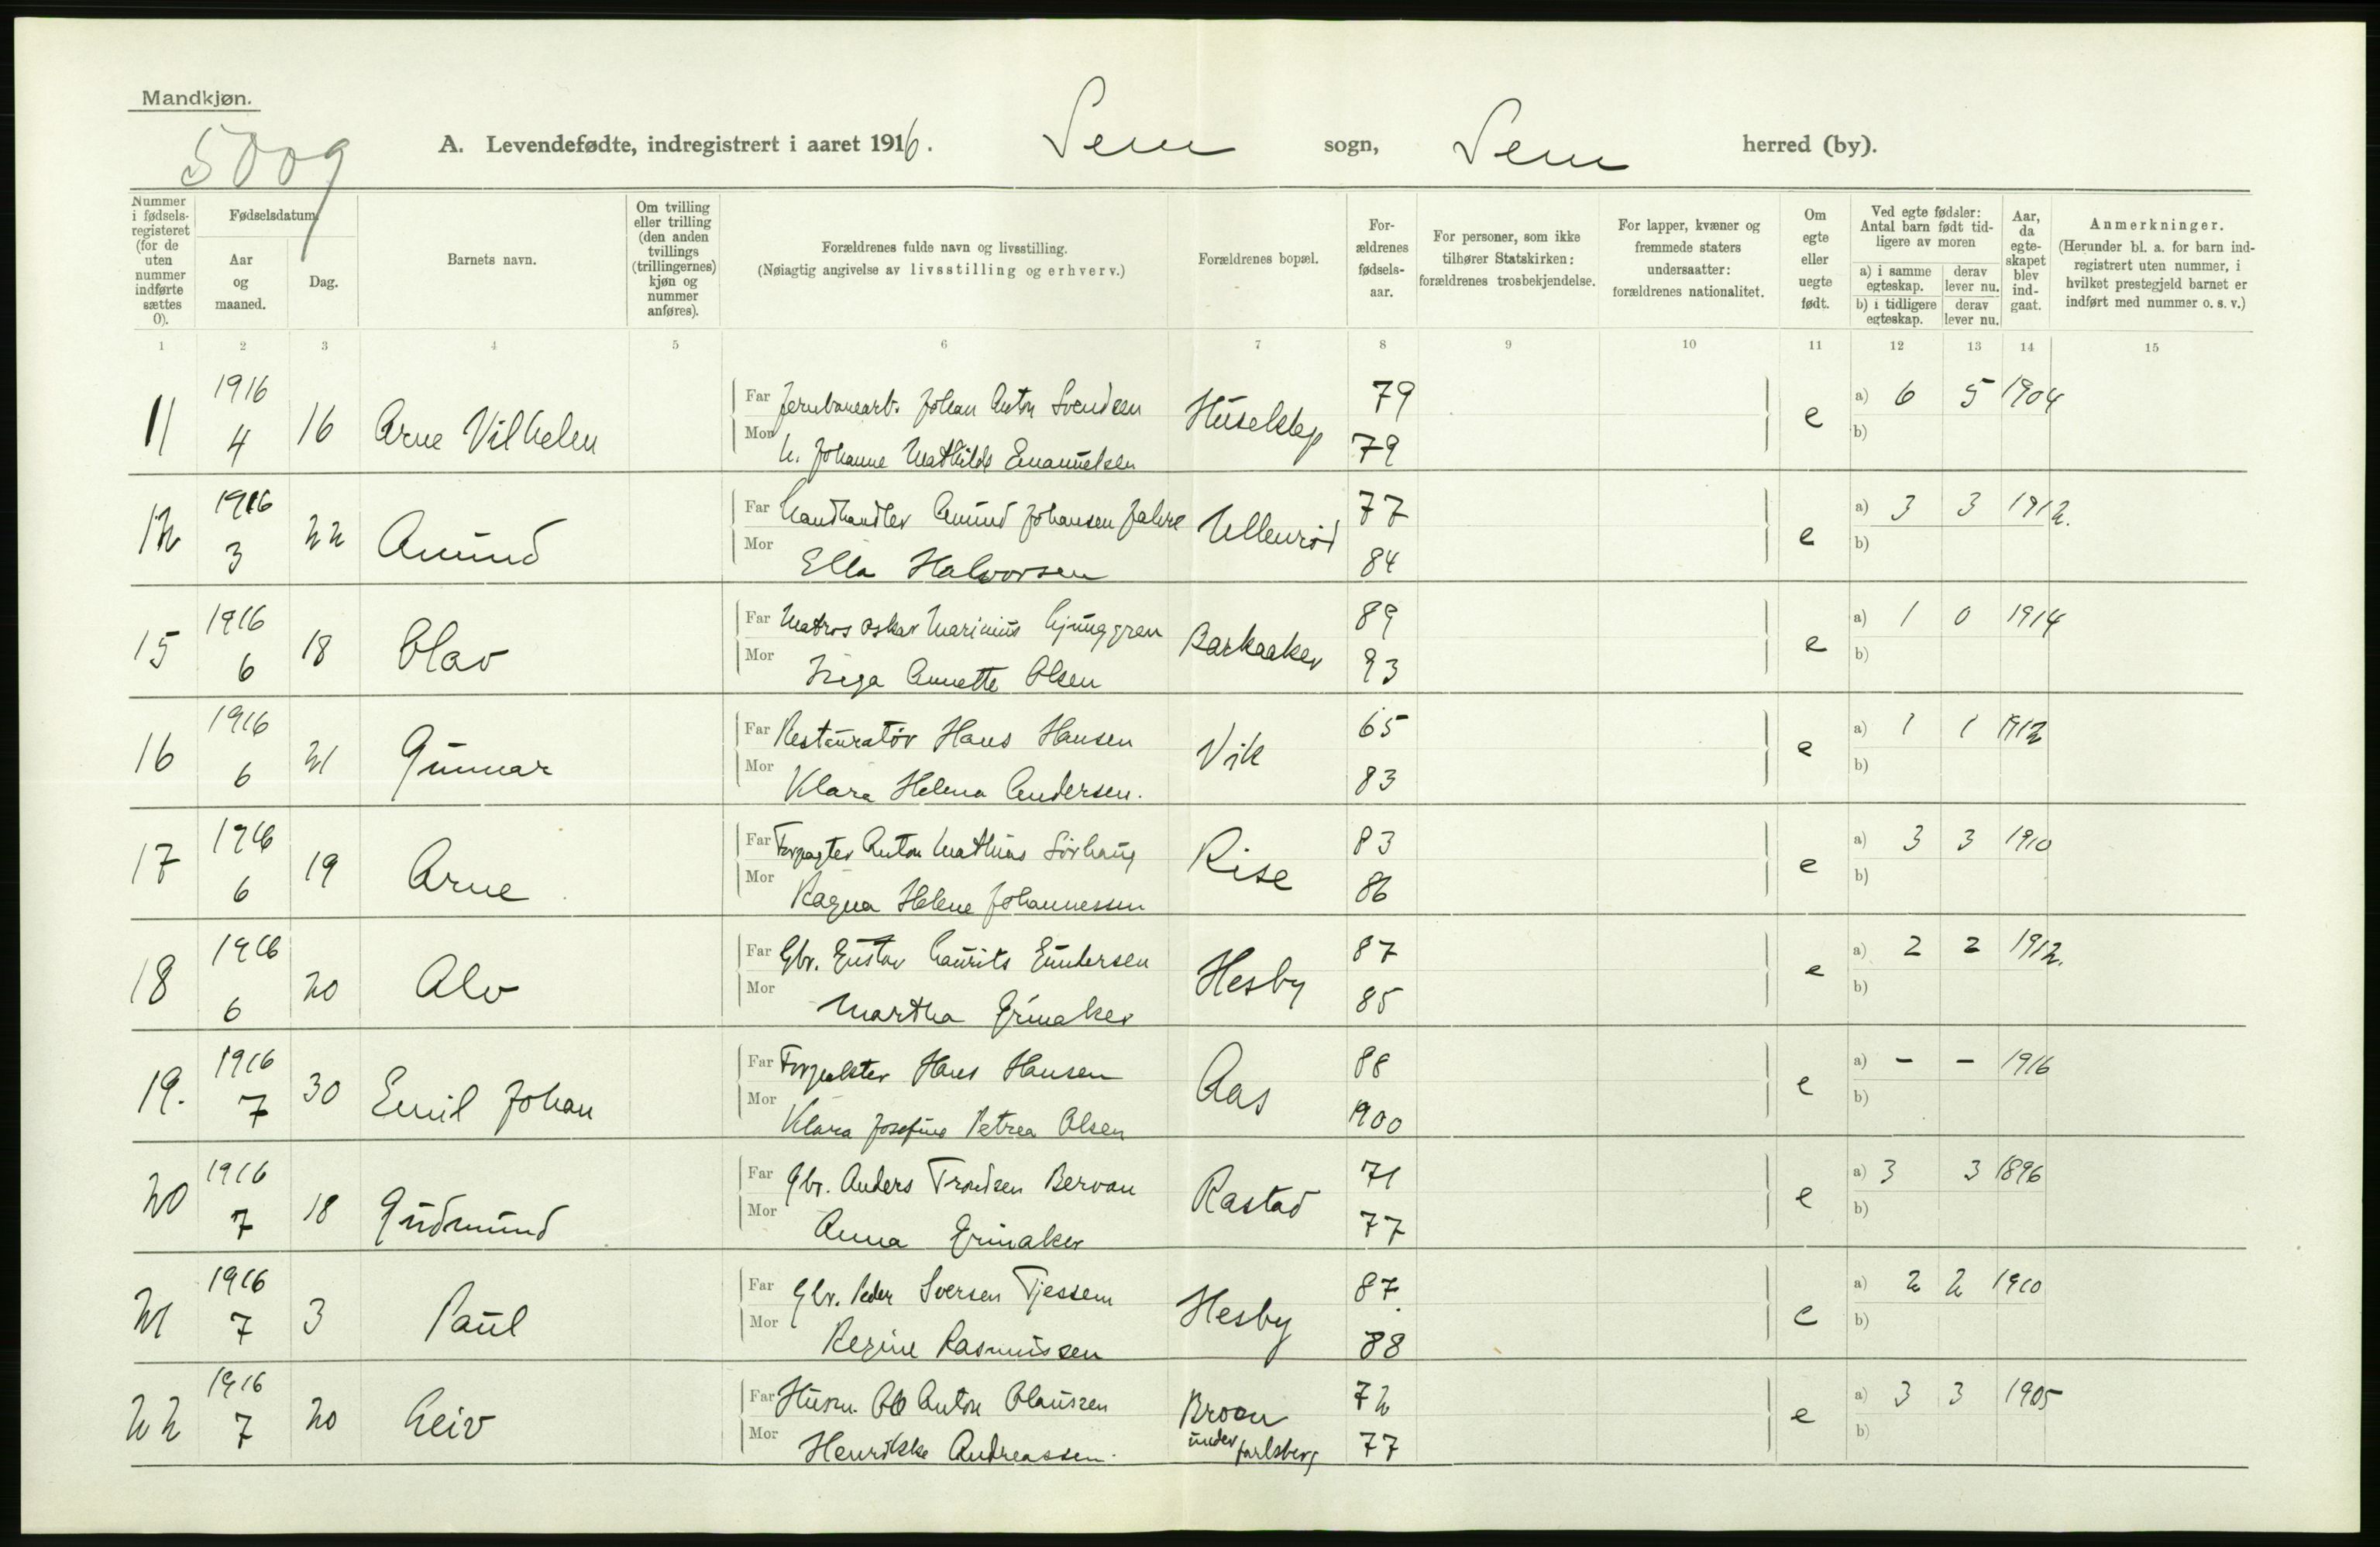 Mandkjøn.
5009
A. Levendefødte, indregistrert i aaret 1916. Sem sogn, Sem herred (by).
Nummer i fødselsregisteret (for de uten nummer indførte sættes 0).
Fødselsdatum.
Aar og maaned.
Dag.
Barnets navn.
Om tvilling eller trilling (den anden tvillings (trillingernes) kjøn og nummer anføres).
Forældrenes fulde navn og livsstilling.
(Nøiagtig angivelse av livsstilling og erhverv.)
Forældrenes bopæl.
Forældrenes fødselsaar.
For personer, som ikke tilhører Statskirken: forældrenes trosbekjendelse.
For lapper, kvæner og fremmede staters undersaatter: forældrenes nationalitet.
Om egte eller uegte født.
Ved egte fødsler: Antal barn født tidligere av moren
a) i samme egteskap. derav lever nu.
b) i tidligere egteskap. derav lever nu.
Aar, da egteskapet blev indgaat.
Anmerkninger.
(Herunder bl. a. for barn indregistrert uten nummer, i hvilket prestegjeld barnet er indført med nummer o. s. v.)
1 2 3 4 5 6 7 8 9 10 11 12 13 14 15
11 1916 4 16 Arne Vilhelm Far Jernbanearb. Johan Anton Svendsen Huseklep 79 e a) 6 5 1904
Mor h. Johanne Mathilde Emanuelsen 79 b)
12 1916 3 22 Amund Far Landhandler Amund Johansen Jahre Ullenrød 77 e a) 3 3 1912.
Mor Ella Halvorsen 84 b)
15 1916 6 18 Olav Far Matros Oskar Marinius Ljunggren Barkaaker 89 e a) 1 0 1914
Mor Inga Annette Olsen 93 b)
16 1916 6 21 Gunnar Far Restauratør Hans Hansen Vik 65 e a) 1 1 1912
Mor Klara Helena Andersen. 83 b)
17 1916 6 19 Arne Far Forpagter Anton Mathias Sørhaug Rise 83 e a) 3 3 1910
Mor Ragna Helene Johannessen 86 b)
18 1916 6 20 Alv Far Gbr. Gustav Laurits Gundersen Hesby 87 e a) 2 2 1912.
Mor Martha Grinaker 85 b)
19. 1916 7 30 Emil Johan Far Forpakter Hans Hansen Aas 88 e a) - - 1916
Mor Klara Josefine Petrea Olsen 1900 b)
20 1916 7 18 Gudmund Far Gbr. Anders Trondsen Bervan Rastad 71 e a) 3 3 1896
Mor Anna Grinaker 77 b)
21 1916 7 3 Paul Far Gbr. Peder Sversen Tjessem Hesby 87 e a) 2 2 1910
Mor Regine Rasmussen 88 b)
22 1916 7 20 Leiv Far Husm. Ole Anton Olaussen Broen 72 e a) 3 3 1905
Mor Henrikke Andreassen. under Jarlsberg 77 b)